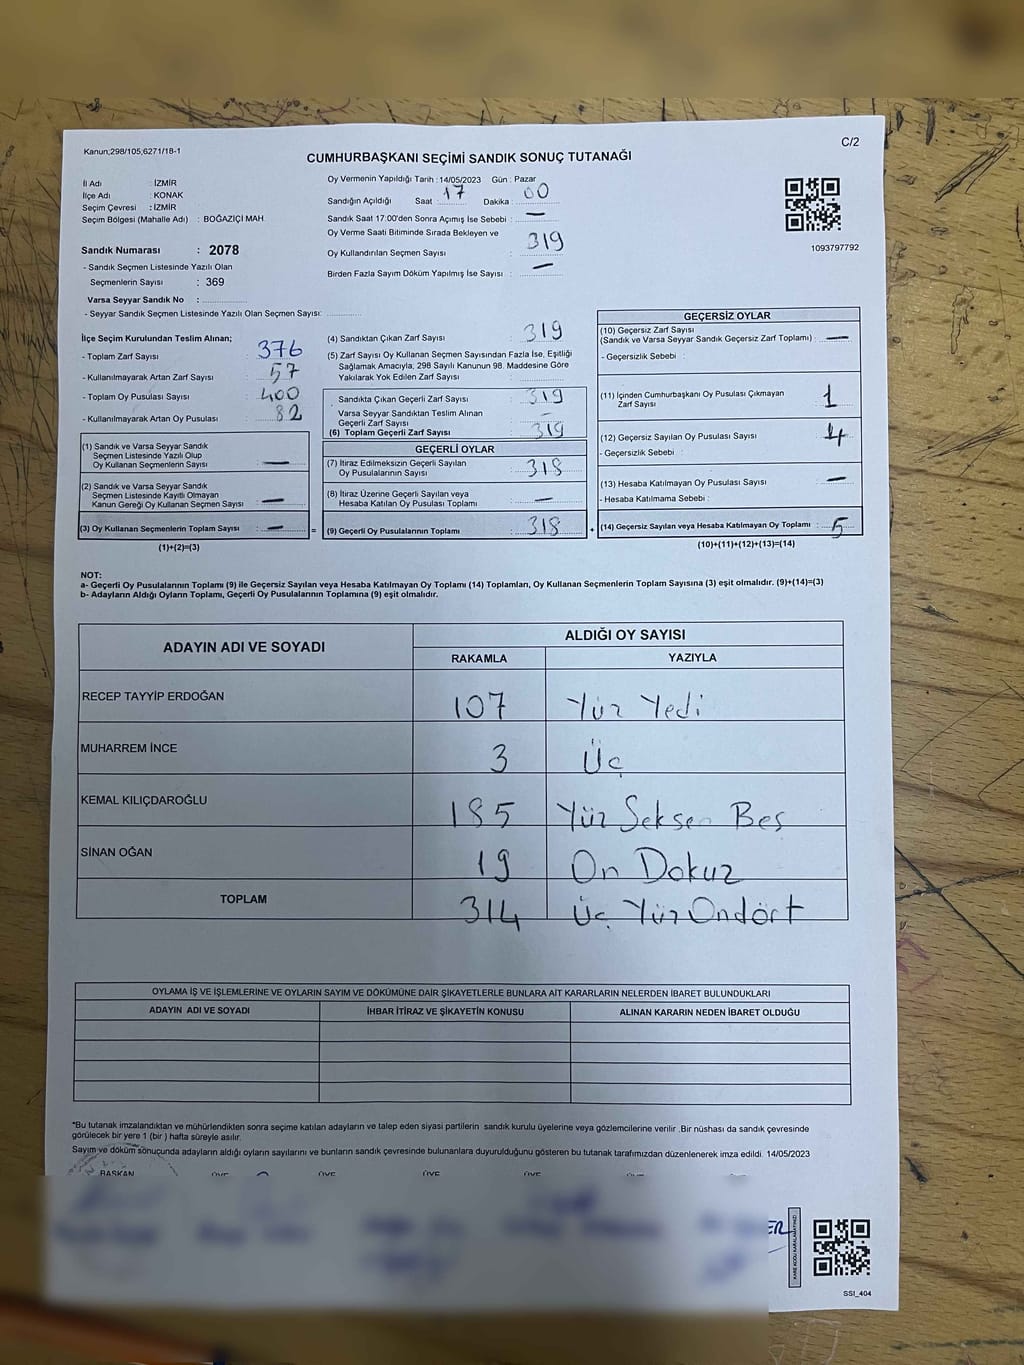 Kanun;298/105;6271/18-1
C/2
CUMHURBAŞKANI SEÇİMİ SANDIK SONUÇ TUTANAĞI
İl Adı : İZMİR
İlçe Adı : KONAK
Seçim Çevresi : İZMİR
Seçim Bölgesi (Mahalle Adı) : BOĞAZİÇİ MAH.
Sandık Numarası : 2078
- Sandık Seçmen Listesinde Yazılı Olan
Seçmenlerin Sayısı : 369
Varsa Seyyar Sandık No :
- Seyyar Sandık Seçmen Listesinde Yazılı Olan Seçmen Sayısı:
Oy Vermenin Yapıldığı Tarih : 14/05/2023 Gün : Pazar
Sandığın Açıldığı Saat : 17 Dakika : 00
Sandık Saat 17:00'den Sonra Açımış İse Sebebi : —
Oy Verme Saati Bitiminde Sırada Bekleyen ve
Oy Kullandırılan Seçmen Sayısı : 319
Birden Fazla Sayım Döküm Yapılmış İse Sayısı : —
1093797792
İlçe Seçim Kurulundan Teslim Alınan;
- Toplam Zarf Sayısı : 376
- Kullanılmayarak Artan Zarf Sayısı : 57
- Toplam Oy Pusulası Sayısı : 400
- Kullanılmayarak Artan Oy Pusulası : 82
(1) Sandık ve Varsa Seyyar Sandık
Seçmen Listesinde Yazılı Olup
Oy Kullanan Seçmenlerin Sayısı : —
(2) Sandık ve Varsa Seyyar Sandık
Seçmen Listesinde Kayıtlı Olmayan
Kanun Gereği Oy Kullanan Seçmen Sayısı : —
(3) Oy Kullanan Seçmenlerin Toplam Sayısı : — =
(1)+(2)=(3)
(4) Sandıktan Çıkan Zarf Sayısı : 319
(5) Zarf Sayısı Oy Kullanan Seçmen Sayısından Fazla İse, Eşitliği
Sağlamak Amacıyla; 298 Sayılı Kanunun 98. Maddesine Göre
Yakılarak Yok Edilen Zarf Sayısı :
Sandıkta Çıkan Geçerli Zarf Sayısı : 319
Varsa Seyyar Sandıktan Teslim Alınan
Geçerli Zarf Sayısı : -
(6) Toplam Geçerli Zarf Sayısı : 319
GEÇERLİ OYLAR
(7) İtiraz Edilmeksizin Geçerli Sayılan
Oy Pusulalarının Sayısı : 318
(8) İtiraz Üzerine Geçerli Sayılan veya
Hesaba Katılan Oy Pusulası Toplamı : —
(9) Geçerli Oy Pusulalarının Toplamı : 318 +
GEÇERSİZ OYLAR
(10) Geçersiz Zarf Sayısı
(Sandık ve Varsa Seyyar Sandık Geçersiz Zarf Toplamı) : —
- Geçersizlik Sebebi :
(11) İçinden Cumhurbaşkanı Oy Pusulası Çıkmayan
Zarf Sayısı : 1
(12) Geçersiz Sayılan Oy Pusulası Sayısı : 4
- Geçersizlik Sebebi :
(13) Hesaba Katılmayan Oy Pusulası Sayısı : —
- Hesaba Katılmama Sebebi :
(14) Geçersiz Sayılan veya Hesaba Katılmayan Oy Toplamı : 5
(10)+(11)+(12)+(13)=(14)
NOT:
a- Geçerli Oy Pusulalarının Toplamı (9) ile Geçersiz Sayılan veya Hesaba Katılmayan Oy Toplamı (14) Toplamları, Oy Kullanan Seçmenlerin Toplam Sayısına (3) eşit olmalıdır. (9)+(14)=(3)
b- Adayların Aldığı Oyların Toplamı, Geçerli Oy Pusulalarının Toplamına (9) eşit olmalıdır.
ADAYIN ADI VE SOYADI ALDIĞI OY SAYISI
RAKAMLA YAZIYLA
RECEP TAYYİP ERDOĞAN 107 Yüz Yedi
MUHARREM İNCE 3 Üç
KEMAL KILIÇDAROĞLU 185 Yüz Seksen Beş
SİNAN OĞAN 19 On Dokuz
TOPLAM 314 Üç Yüz Ondört
OYLAMA İŞ VE İŞLEMLERİNE VE OYLARIN SAYIM VE DÖKÜMÜNE DAİR ŞİKAYETLERLE BUNLARA AİT KARARLARIN NELERDEN İBARET BULUNDUKLARI
ADAYIN ADI VE SOYADI İHBAR İTİRAZ VE ŞİKAYETİN KONUSU ALINAN KARARIN NEDEN İBARET OLDUĞU
*Bu tutanak imzalandıktan ve mühürlendikten sonra seçime katılan adayların ve talep eden siyasi partilerin sandık kurulu üyelerine veya gözlemcilerine verilir .Bir nüshası da sandık çevresinde
görülecek bir yere 1 (bir ) hafta süreyle asılır.
Sayım ve döküm sonucunda adayların aldığı oyların sayılarını ve bunların sandık çevresinde bulunanlara duyurulduğunu gösteren bu tutanak tarafımızdan düzenlenerek imza edildi. 14/05/2023
BAŞKAN ÜYE ÜYE ÜYE ÜYE ÜYE
ER
KARE KODU KARALAMAYINIZ!
SSI_404